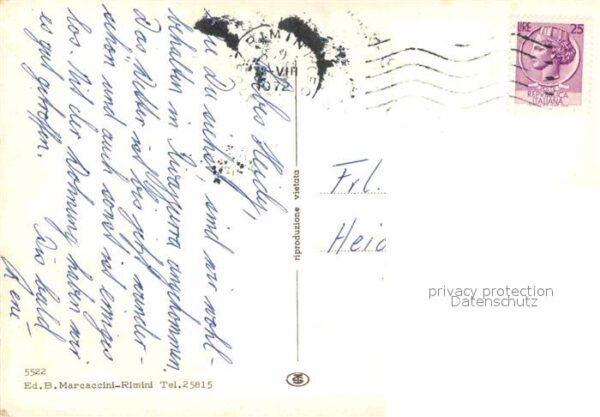 Liebes Heidy,
wie Du siehst, sind wir wohl-
behalten in Rivazzurra angekommen.
Das Wetter ist bis jetzt wunder-
schön und auch sonst ist einiges
los. Mit der Wohnung haben wir
es gut getroffen.
Bis bald
René
RIMINI
VIII
1972
LIRE 25
REPUBBLICA
ITALIANA
Frl.
Heid
riproduzione vietata
privacy protection
Datenschutz
5522
Ed.B.Marcaccini-Rimini Tel.25815